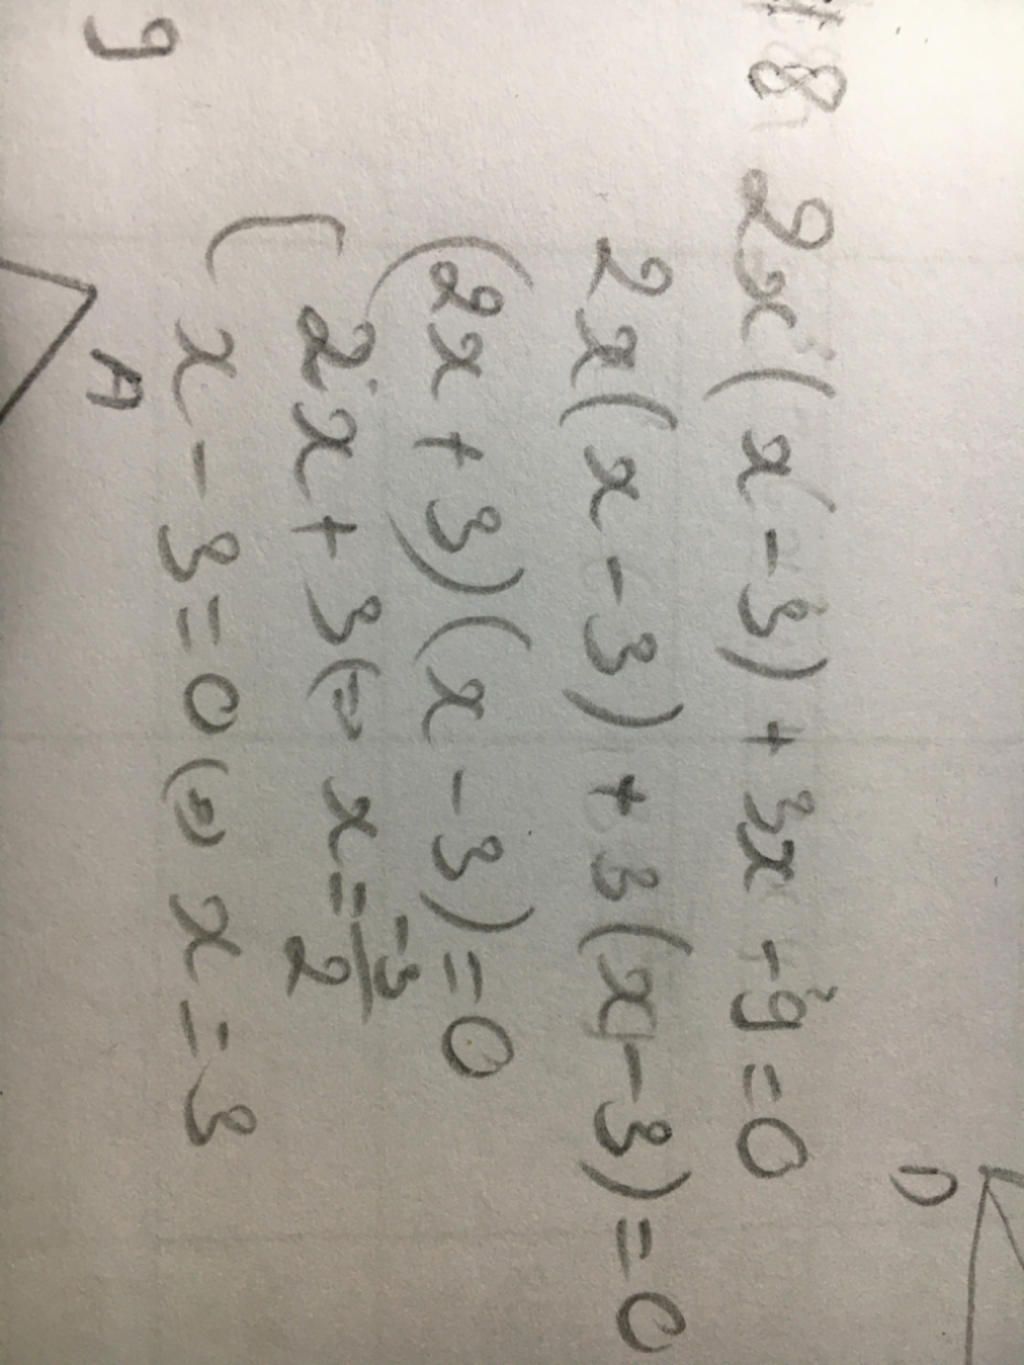 #8 2x(x-3)+3x-9=0
2x(x-3)+3(x-3)=0
(2x+3)(x-3)=0
[2x+3(=) x=-3/2
x-3=0(=) x=3
9
A
D